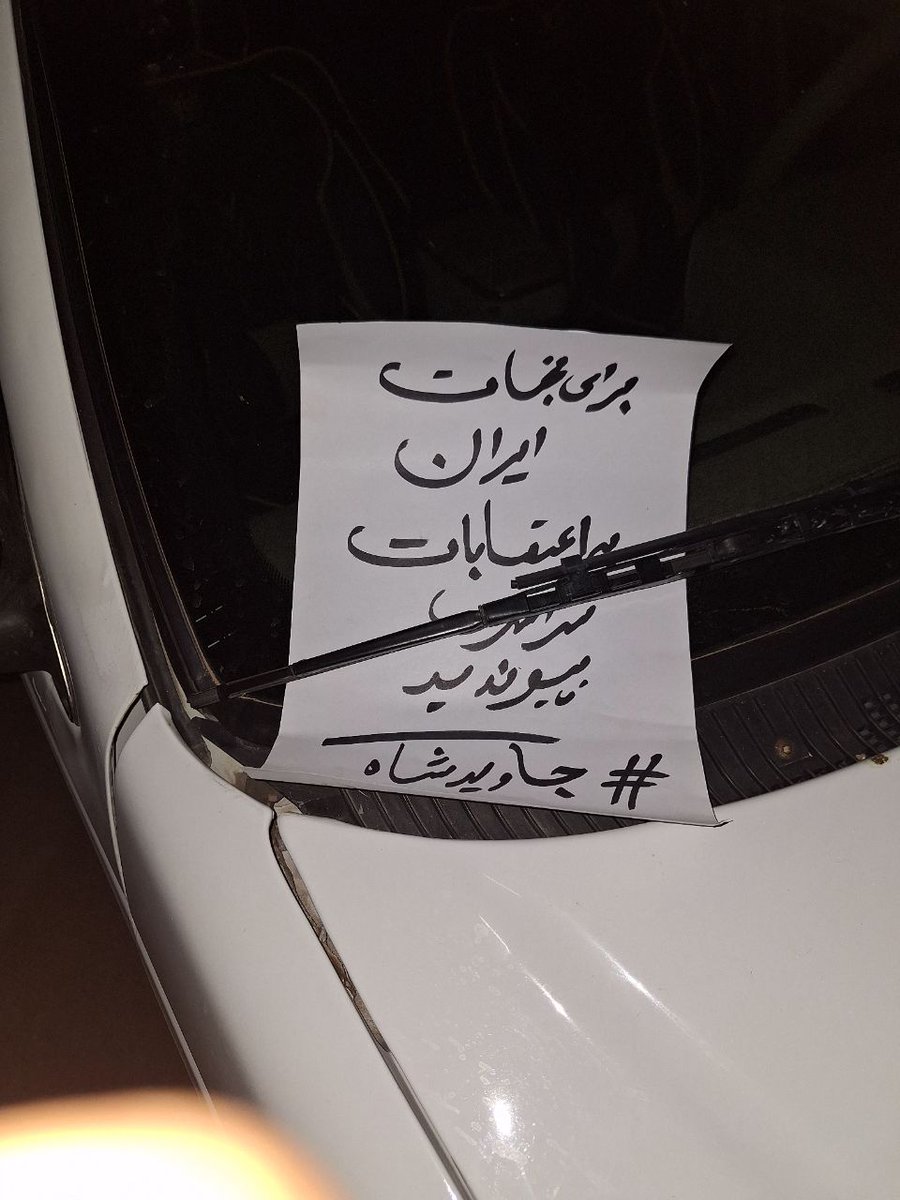 برای نجات
ایران
به اعتصابات
سراسری
بپیوندید
#جاویدشاه